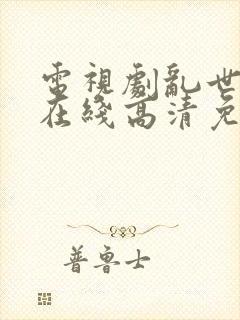 電視劇亂世
在綫高清免
普魯士